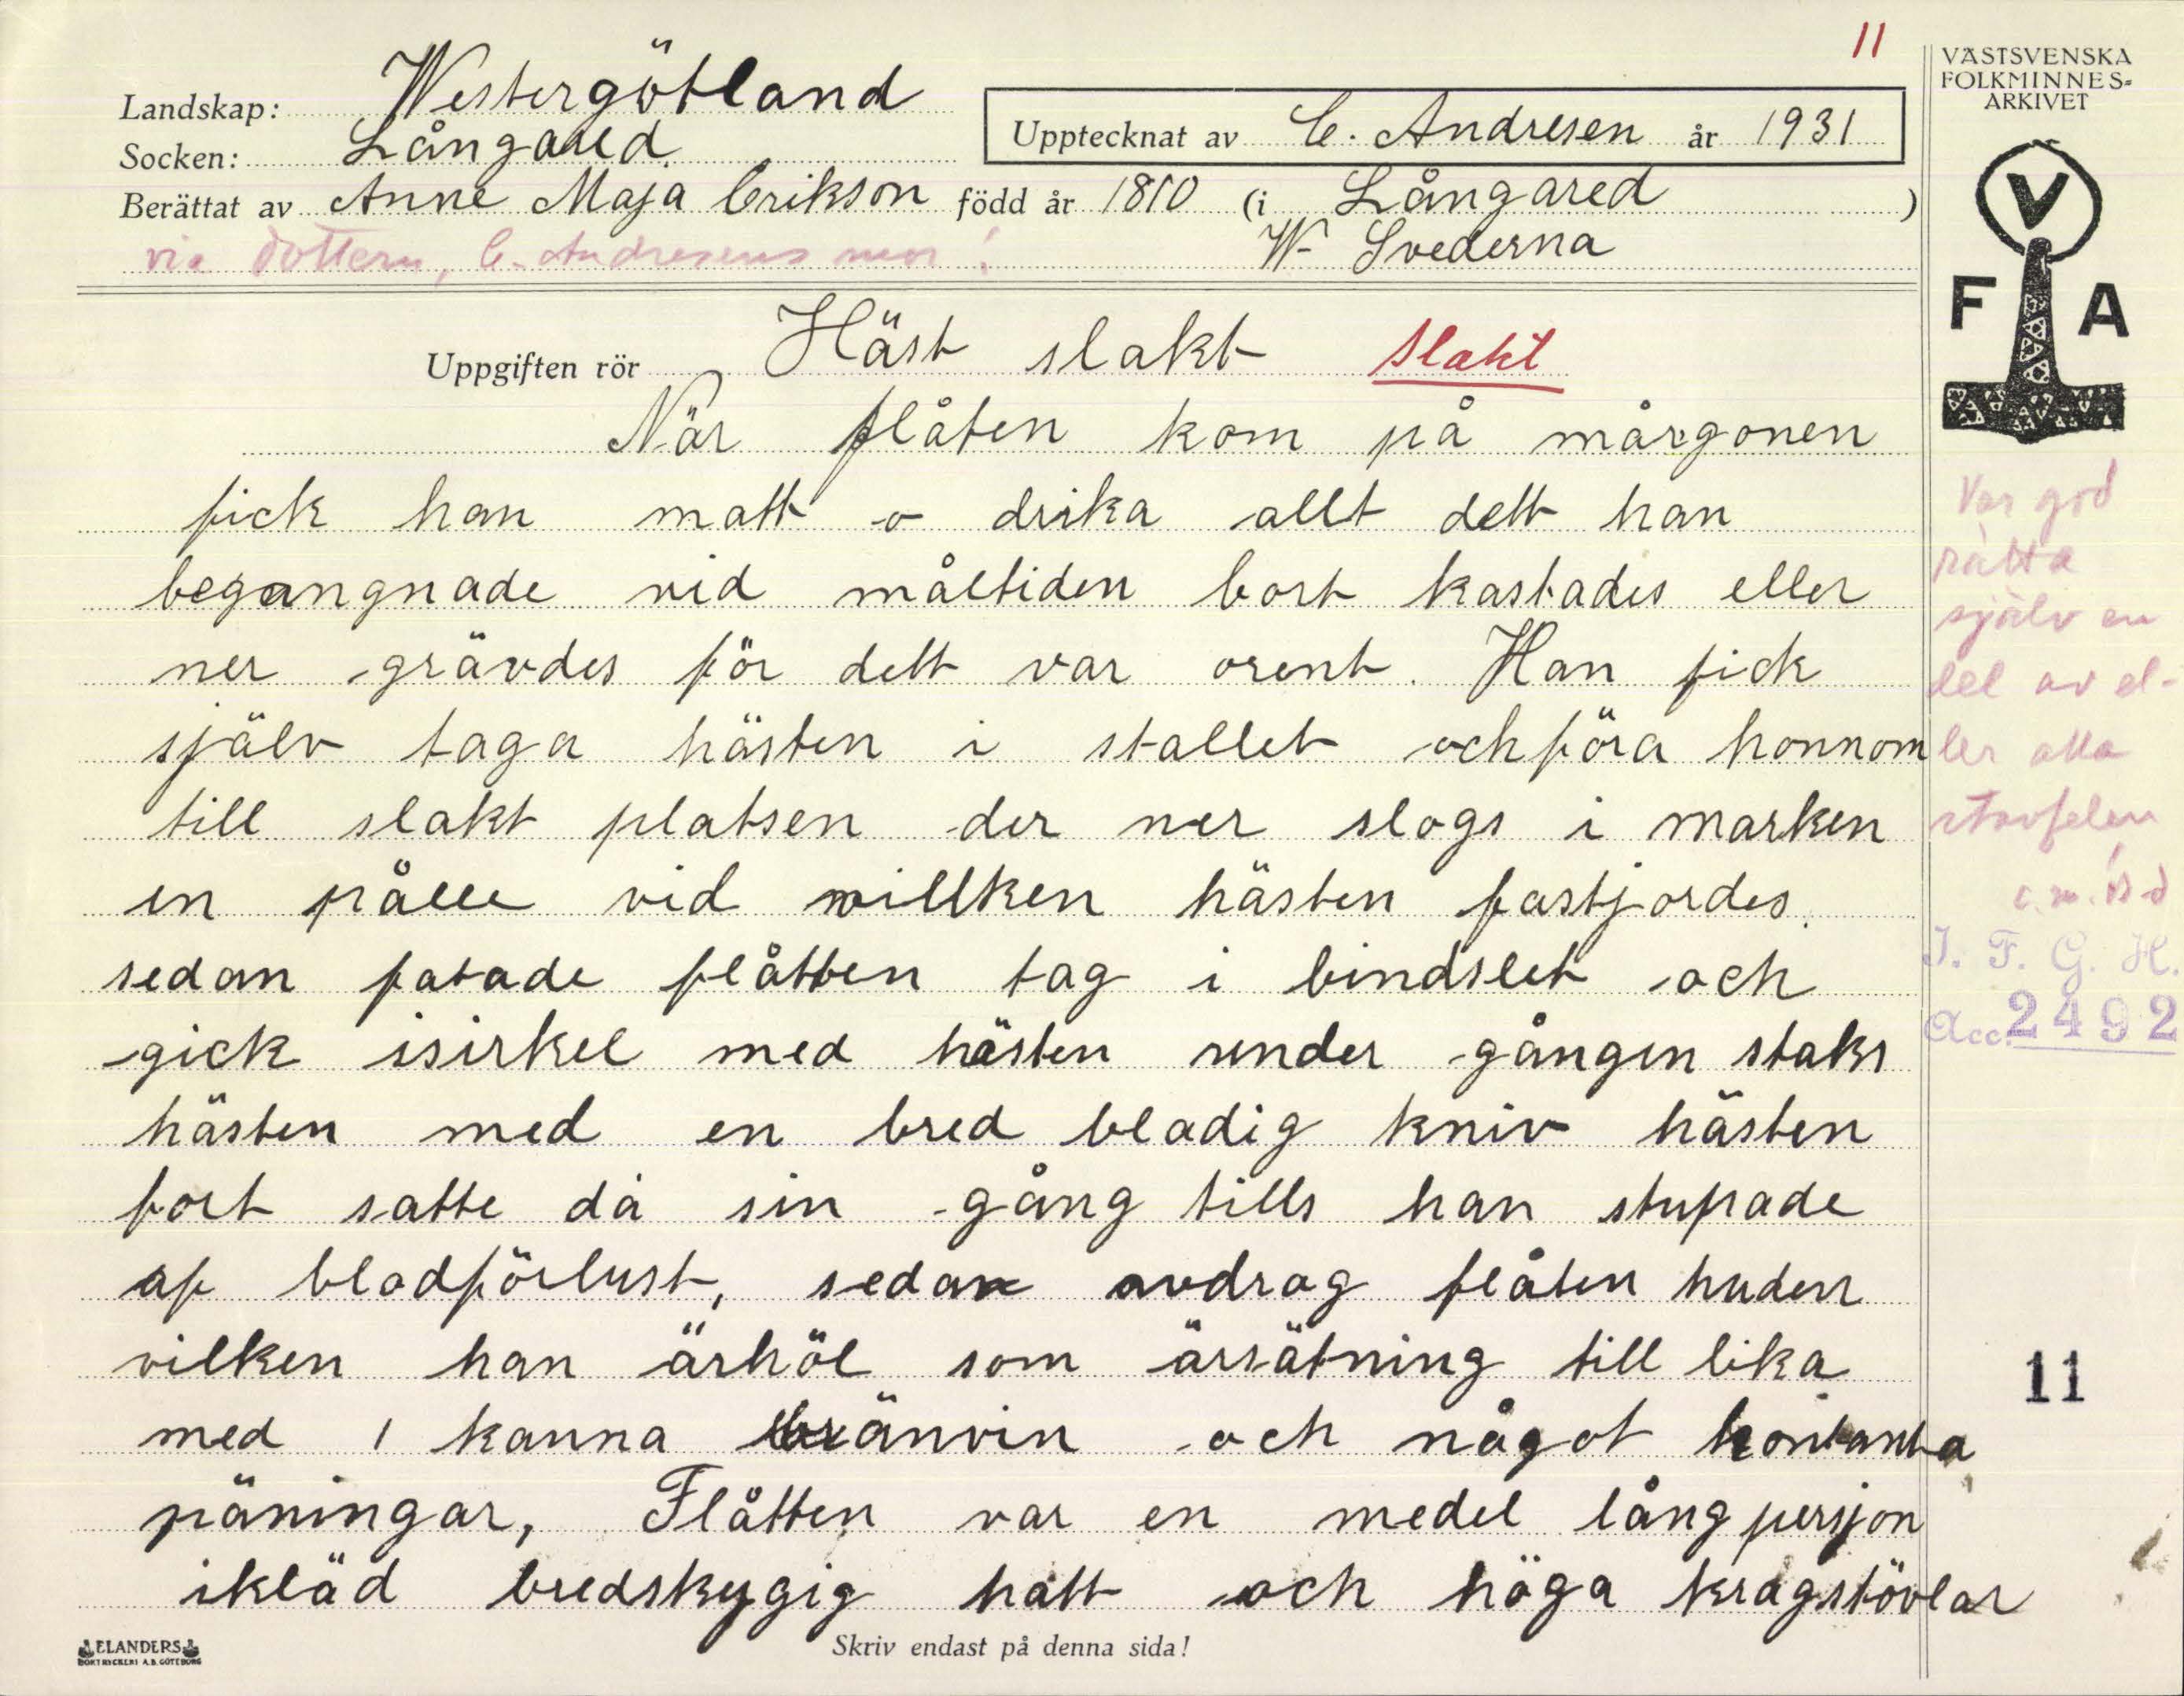 11
VÄSTSVENSKA
FOLKMINNES-
ARKIVET
Landskap: Westergötland
Socken: Långared
Upptecknat av C. Andresen år 1931
Berättat av Anne Maja Erikson född år 1810 (i Långared)
via dottern, C. Andresens mor!
W- Svederna
V
F A
Uppgiften rör Häst slakt slakt
När flåten kom på mårgonen
fick han matt o drika allt dett han
begangnade vid måltiden bort kastades eller
ner grävdes för dett var orent. Han fick
själv taga hästen i stallet ochföra honnom
till slakt platsen der ner slogs i marken
en pålle vid willken hästen fastjordes.
sedan fatade flåtten tag i bindslet och
gick isirkel med hästen under gången staks
hästen med en bred bladig kniv hästen
fort satte då sin gång tills han stupade
af blodförlust, sedan avdrog flåten huden
vilken han ärhöl som ärsätning till lika
med 1 kanna bränvin och något kontanta
päningar, Flåtten var en medel lång persjon
ikläd bredskygig hatt och höga kragstövlar
Var god
rätta
själv en
del av el-
ler alla
stavfelen
I. F. G. H.
Acc. 2492
11
ELANDERS
BOKTRYCKERI A.B. GÖTEBORG
Skriv endast på denna sida!